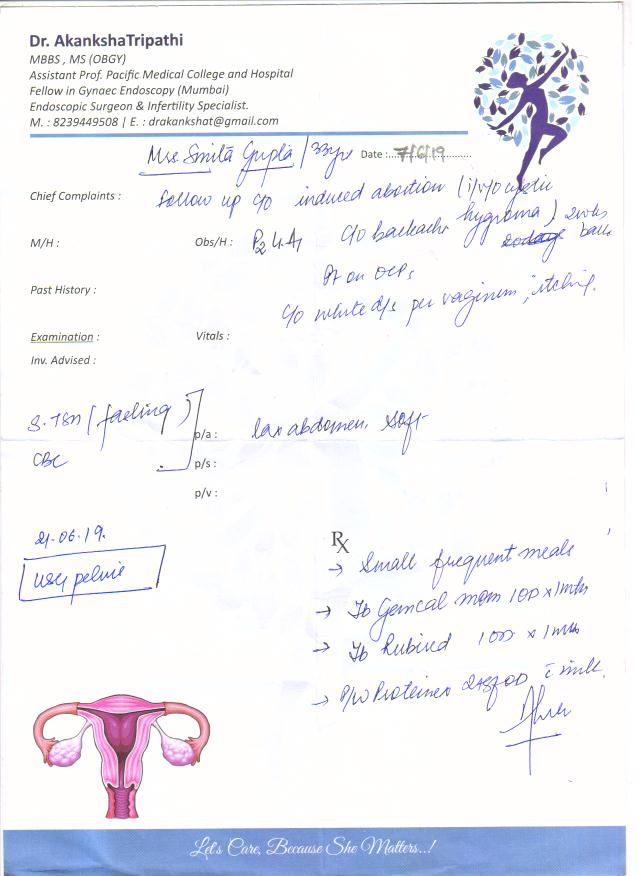 Dr. AkankshaTripathi
MBBS , MS (OBGY)
Assistant Prof. Pacific Medical College and Hospital
Fellow in Gynaec Endoscopy (Mumbai)
Endoscopic Surgeon & Infertility Specialist.
M. : 8239449508 | E. : drakankshat@gmail.com
Mrs. Smita Gupta / 33yr Date :....7/6/19..........
Chief Complaints : follow up c/o induced abortion (i/v/o cystic hygroma) 2 wks back
M/H : Obs/H : P2 L1 A1 c/o backache
Pt on OCPs
Past History :
c/o white d/s per vaginum, itching.
Examination : Vitals :
Inv. Advised :
S. TSH (fasting)
CBC
p/a : lax abdomen, soft
p/s :
p/v :
21.06.19.
USG pelvis
Rx
→ Small frequent meals
→ Tb Gemcal mom 1OD x 1mth
→ Tb Rubired 1OD x 1mth
→ P/w Proteinex 2tsf OD c̄ milk.
Let's Care, Because She Matters..!